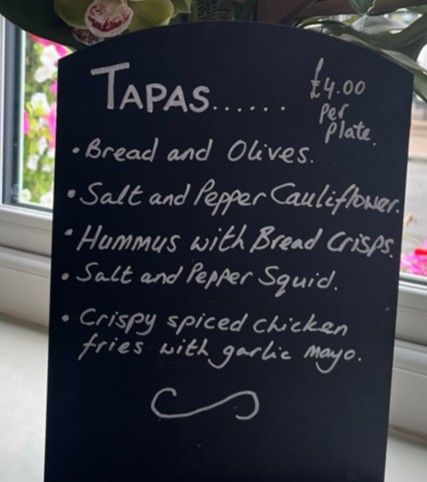 TAPAS......
£4.00
Per
plate.
• Bread and Olives.
• Salt and Pepper Cauliflower.
• Hummus with Bread Crisps.
• Salt and Pepper Squid.
• Crispy spiced chicken
fries with garlic mayo.